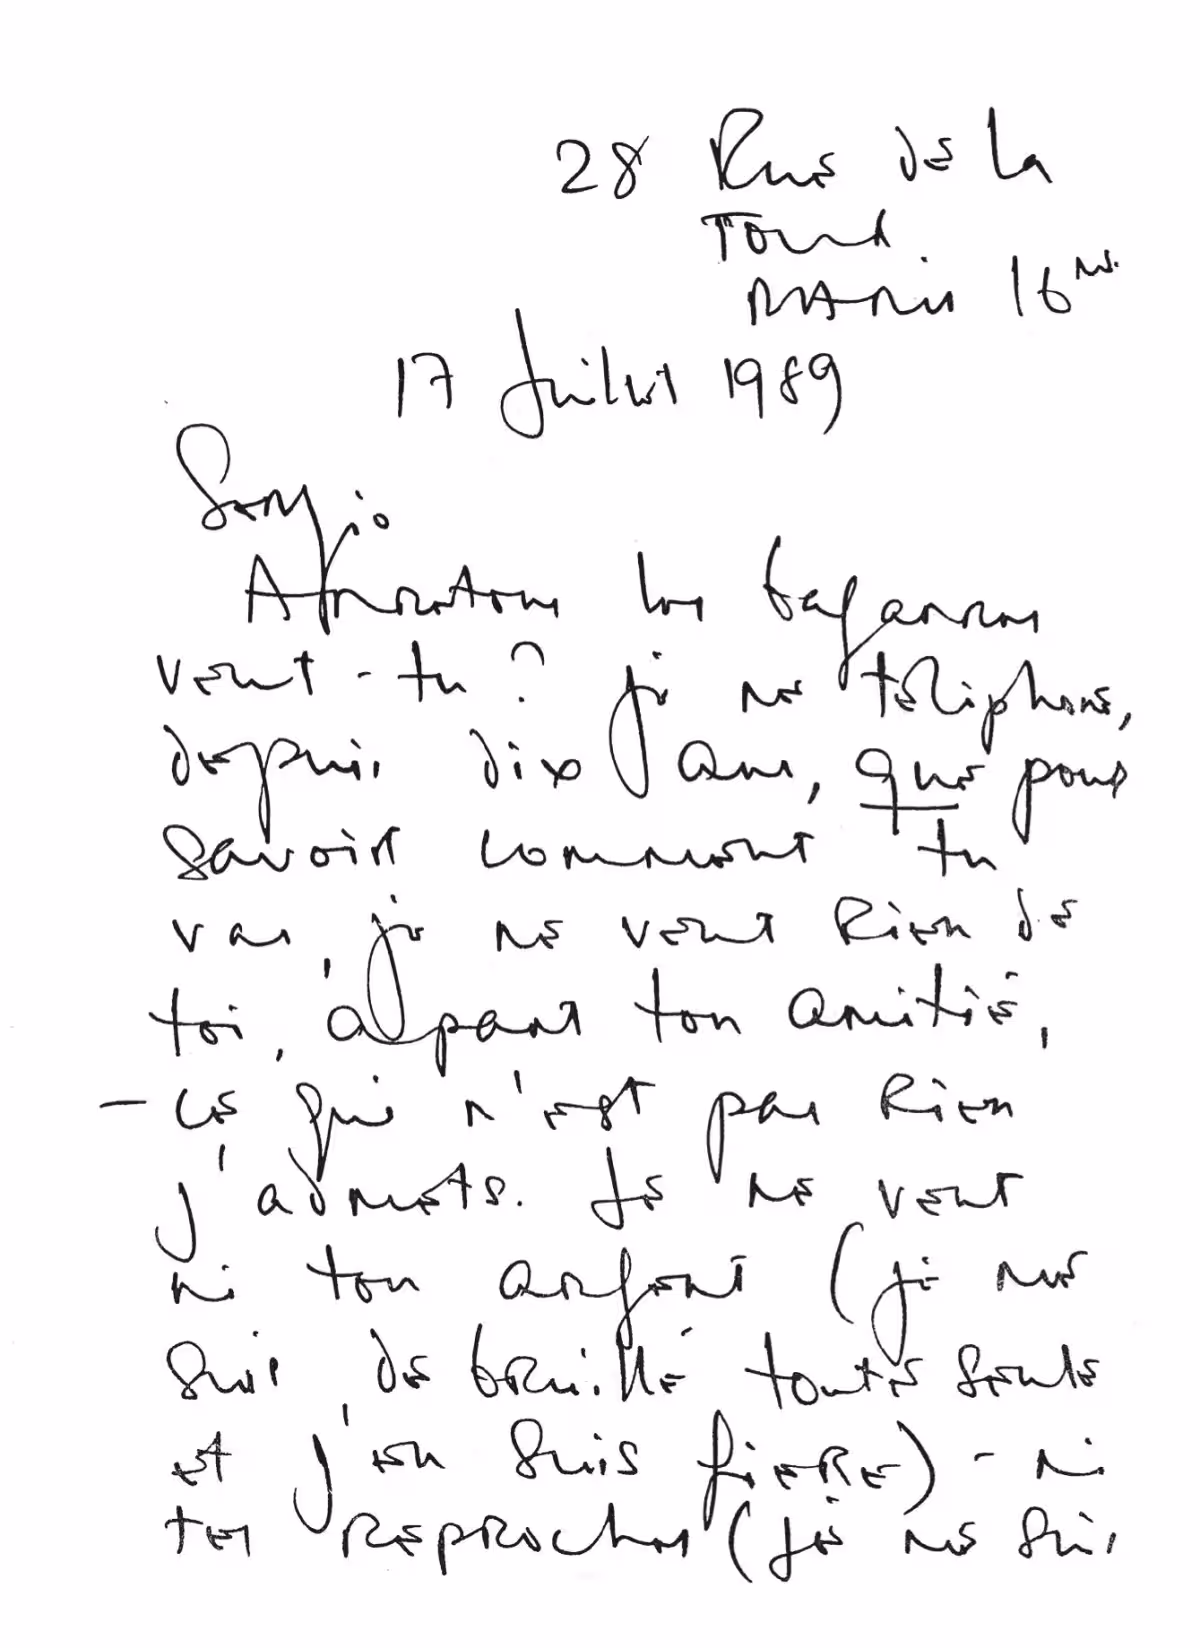 28 Rue de la
Tour
PARIS 16me.
17 Juillet 1989
Sergio
Arretons les bagarres
veut-tu? je ne téléphone,
depuis dix ans, que pour
savoir comment tu
vas, je ne veut Rien de
toi, àpart ton amitié,
- ce qui n'est pas Rien
j'admets. Je ne veut
ni ton argent (je me
suis débruillé toute seule
et j'en suis fiERE) - ni
tes REPROches (je ne suis